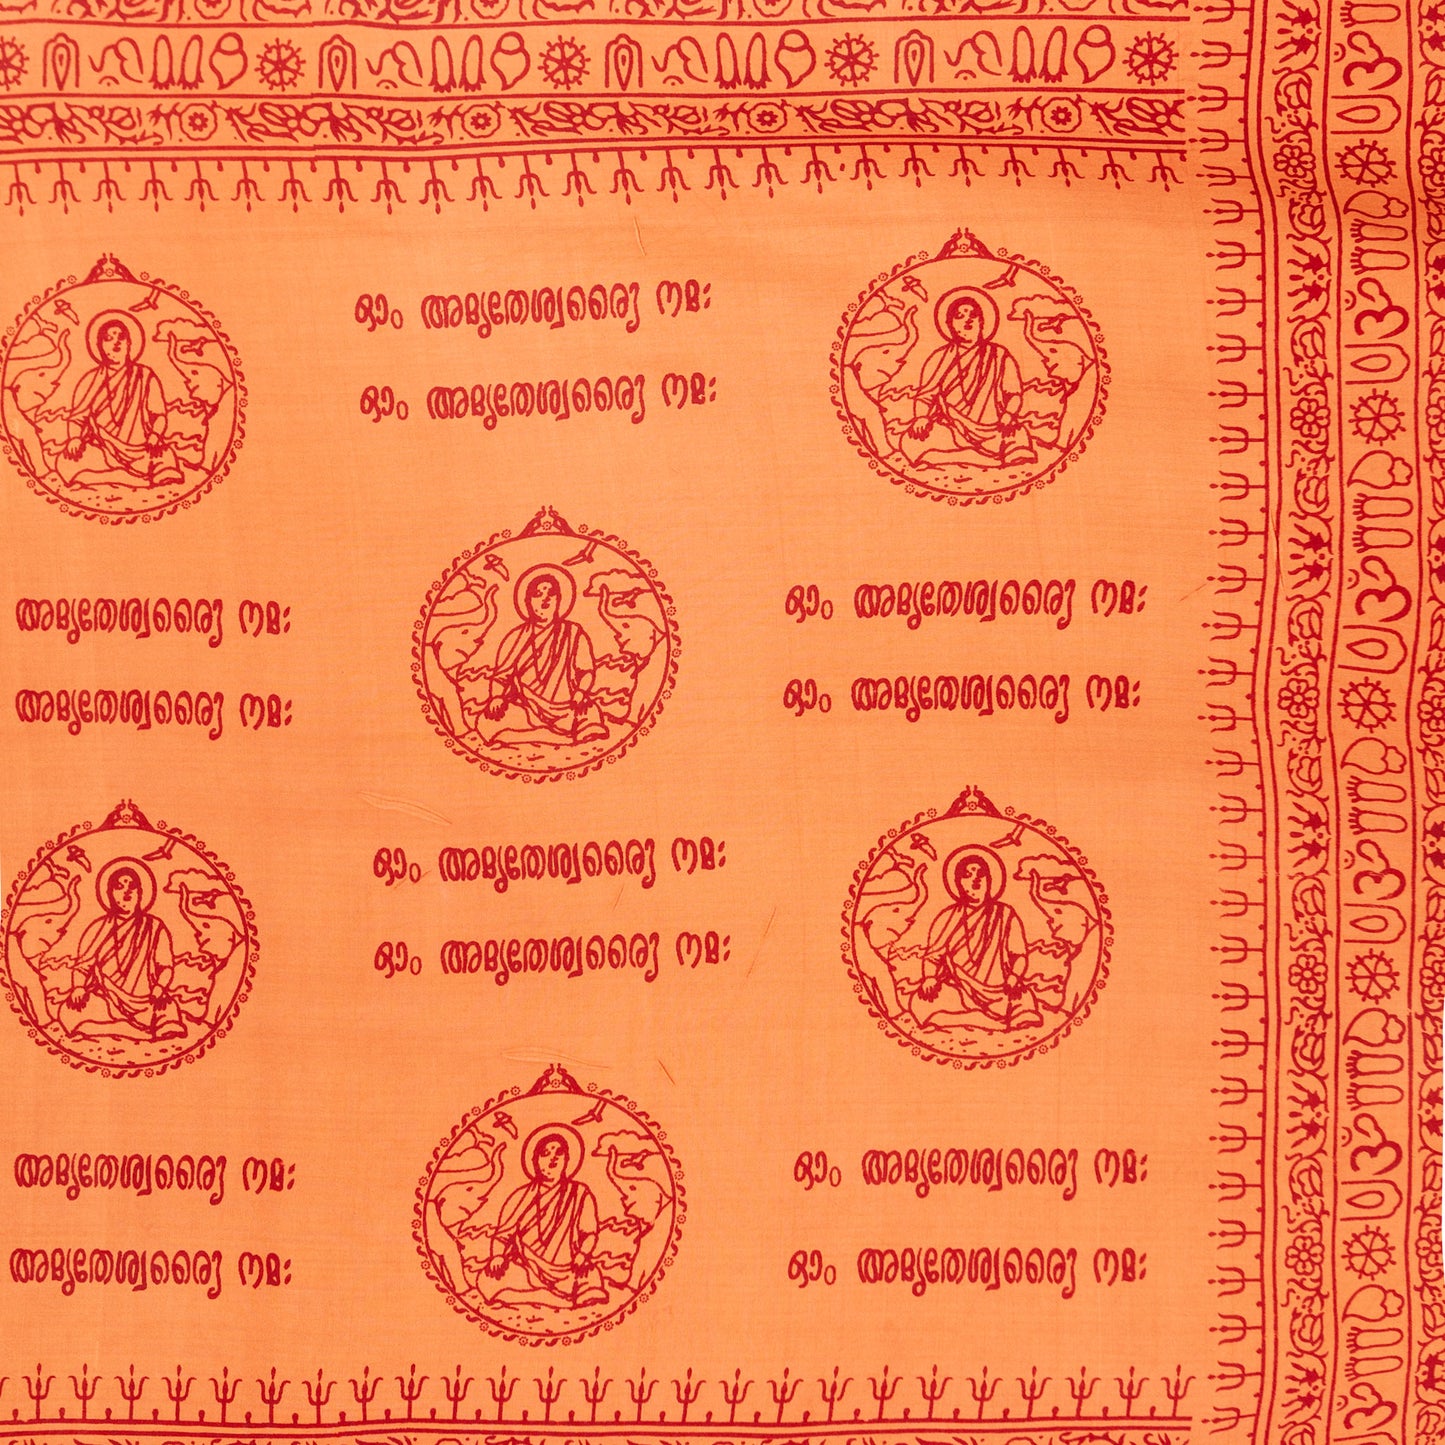 ഓം അമൃതേശ്വര്യൈ നമഃ
ഓം അമൃതേശ്വര്യൈ നമഃ
അമൃതേശ്വര്യൈ നമഃ
അമൃതേശ്വര്യൈ നമഃ
ഓം അമൃതേശ്വര്യൈ നമഃ
ഓം അമൃതേശ്വര്യൈ നമഃ
ഓം അമൃതേശ്വര്യൈ നമഃ
ഓം അമൃതേശ്വര്യൈ നമഃ
അമൃതേശ്വര്യൈ നമഃ
അമൃതേശ്വര്യൈ നമഃ
ഓം അമൃതേശ്വര്യൈ നമഃ
ഓം അമൃതേശ്വര്യൈ നമഃ
ॐ
ॐ
ॐ
ॐ
ॐ
ॐ